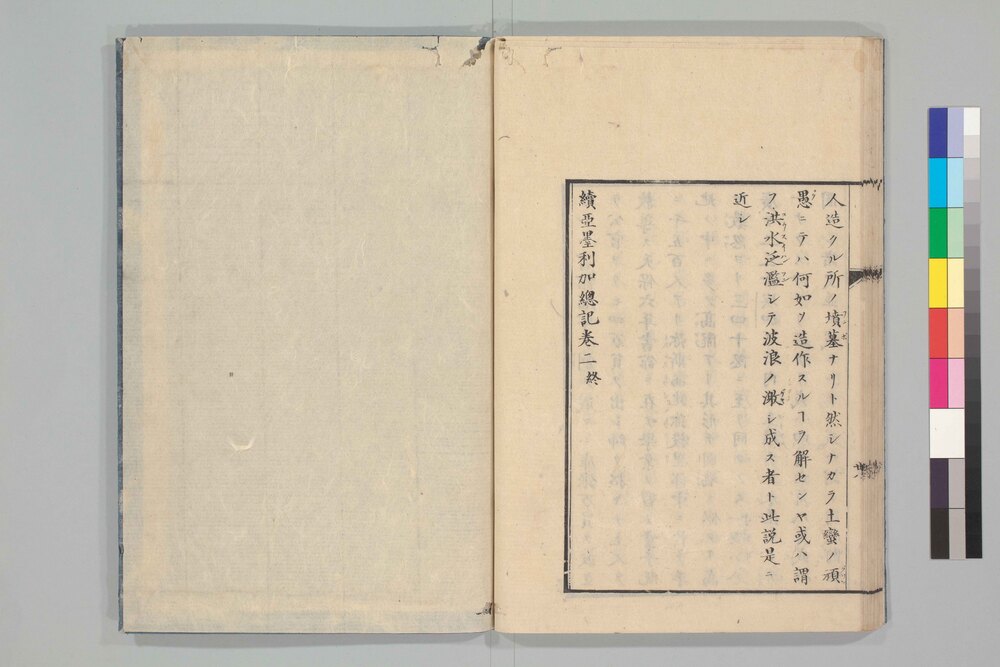 人造クル所ノ墳墓ナリト然シナカラ土蠻ノ頑
愚ニテハ何如ソ造作スルヿヲ解センヤ或ハ謂
フ洪水泛濫シテ波浪ノ激シ成ス者ト此説是ニ
近シ
續亞墨利加總記巻二終